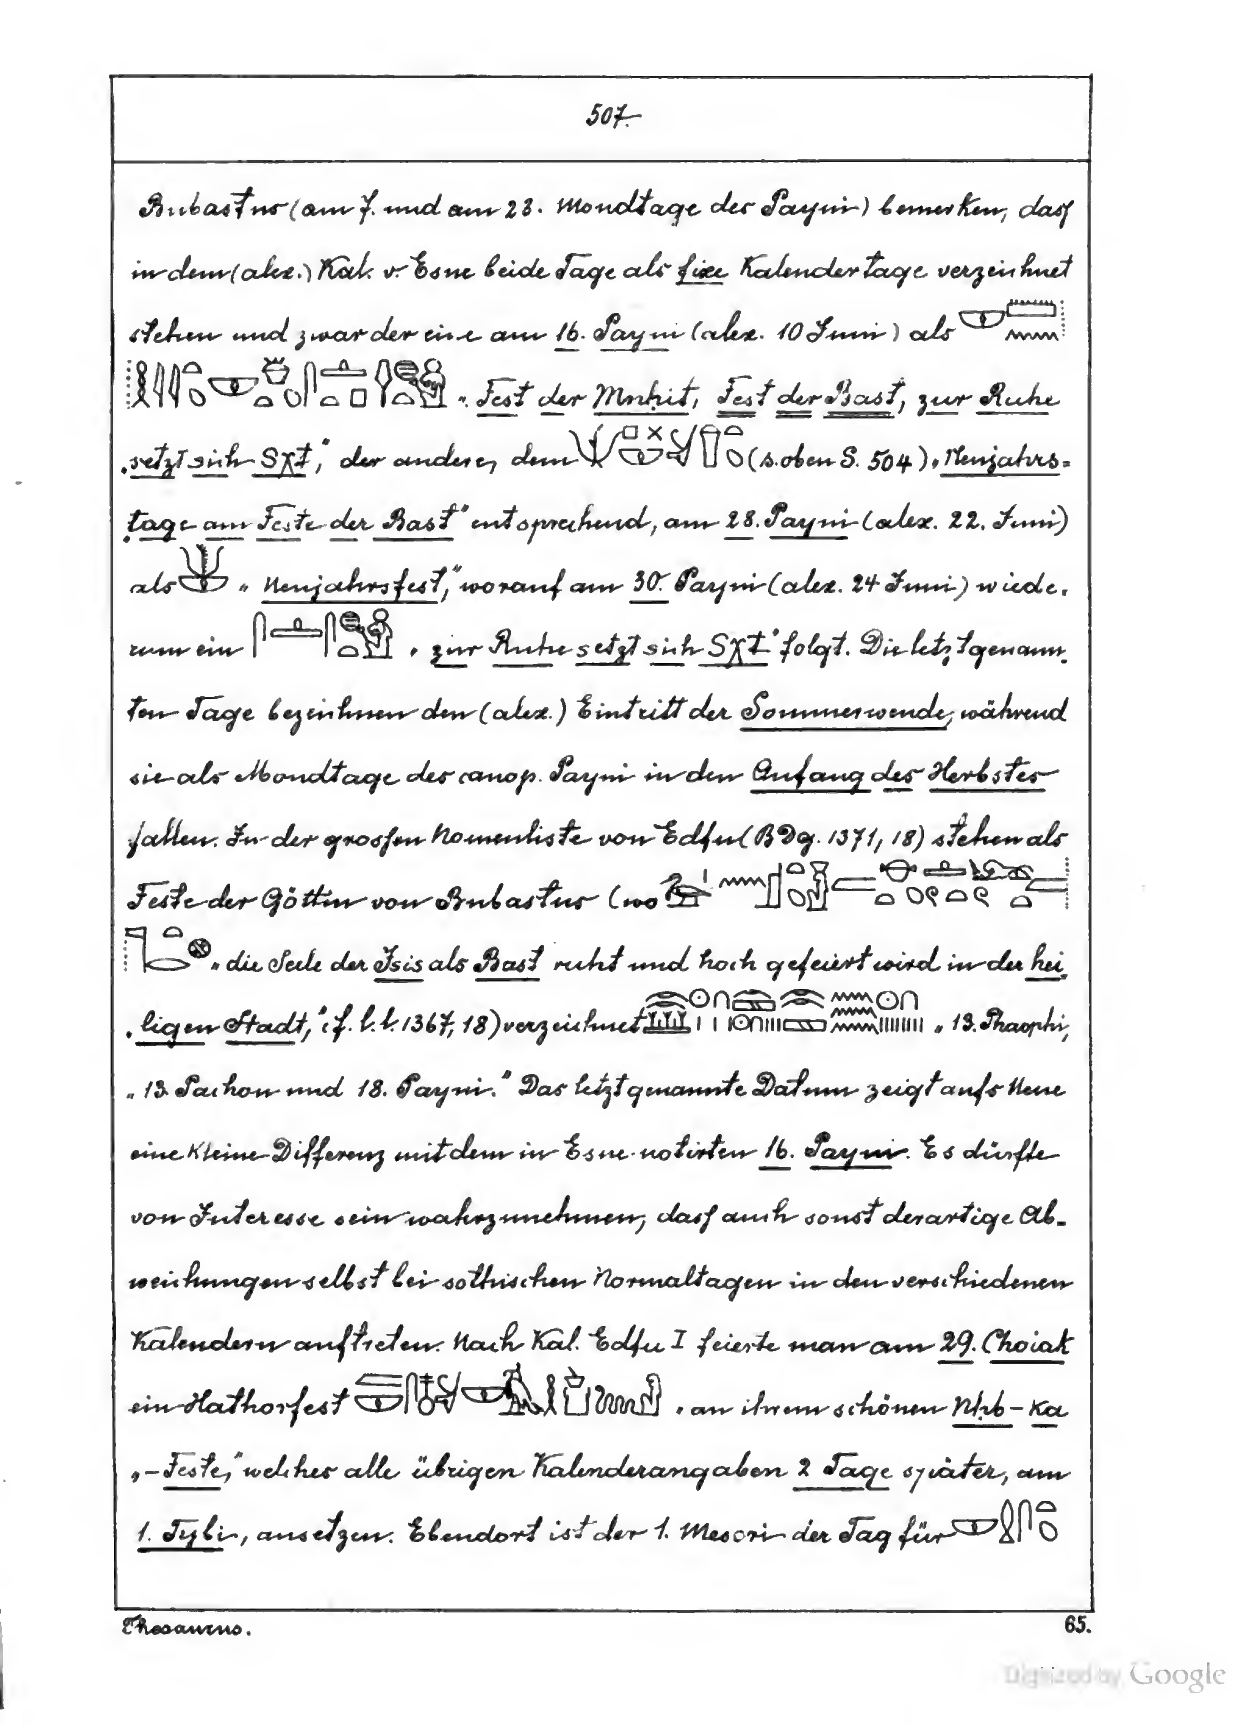 507.
Bubastus (am 7. und am 23. Mondtage des Payni) bemerken, dass
in dem (alex.) Kal. v. Esne beide Tage als fixe Kalendertage verzeichnet
stehen und zwar der eine am 16. Payni (alex. 10 Juni) als
„Fest der Mnḥit, Fest der Bast, zur Ruhe
„setzt sich Sχt," der andere, dem (s. oben S. 504) „Neujahrs-
„tage am Feste der Bast" entsprechend, am 28. Payni (alex. 22. Juni)
als „Neujahrsfest," worauf am 30. Payni (alex. 24 Juni) wiede-
rum ein „zur Ruhe setzt sich Sχt" folgt. Die letztgenann-
ten Tage bezeichnen den (alex.) Eintritt der Sommerwende, während
sie als Mondtage des canop. Payni in den Anfang des Herbstes
fallen. In der grossen Nomenliste von Edfu (BDg. 1371, 18) stehen als
Feste der Göttin von Bubastus (wo
„die Seele der Isis als Bast ruht und hoch gefeiert wird in der hei-
„ligen Stadt," cf. l. l. 1367, 18) verzeichnet „13. Phaophi,
„13. Pachon und 18. Payni." Das letztgenannte Datum zeigt aufs Neue
eine kleine Differenz mit dem in Esne notirten 16. Payni. Es dürfte
von Interesse sein wahrzunehmen, dass auch sonst derartige Ab-
weichungen selbst bei sothischen Normaltagen in den verschiedenen
Kalendern auftreten. Nach Kal. Edfu I feierte man am 29. Choiak
ein Hathorfest „an ihrem schönen Nḥb-ka
„-Feste," welches alle übrigen Kalenderangaben 2 Tage später, am
1. Tybi, ansetzen. Ebendort ist der 1. Mesori der Tag für
Thesaurus.
65.
Digitized by Google